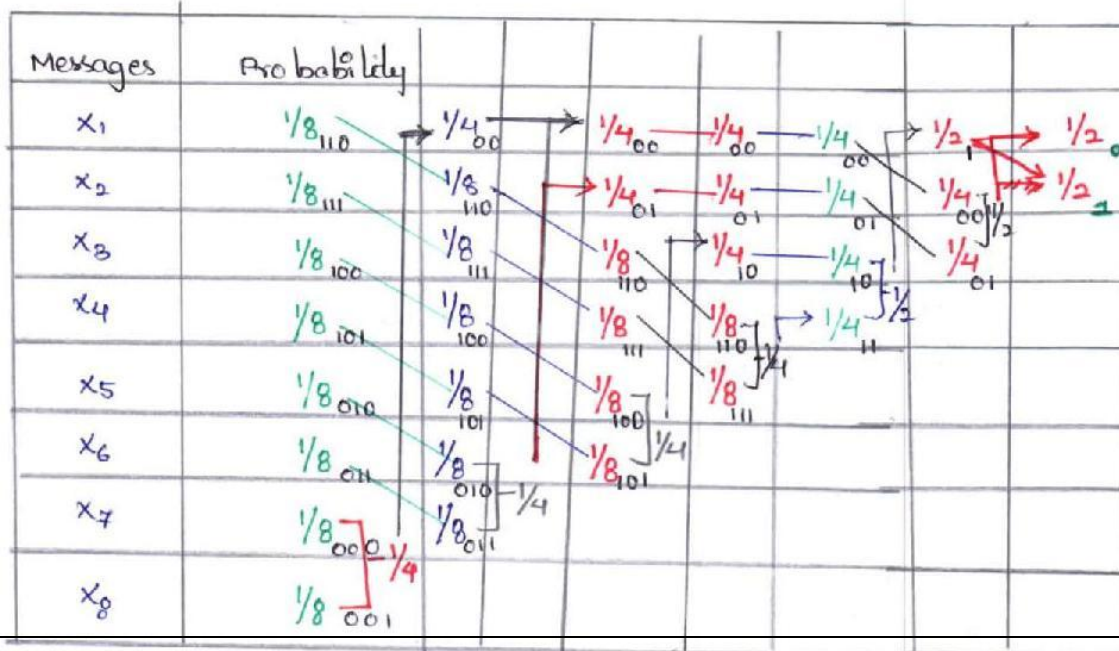 Messages Probability
x1 1/8 110 1/4 00 1/4 00 1/4 00 1/4 00 1/2 1 1/2 0
x2 1/8 111 1/8 110 1/4 01 1/4 01 1/4 01 1/4 00 1/2 1/2 1
x3 1/8 100 1/8 111 1/8 110 1/4 10 1/4 10 1/4 01
x4 1/8 101 1/8 100 1/8 111 1/8 110 1/4 1/4 11 1/2
x5 1/8 010 1/8 101 1/8 100 1/8 111
x6 1/8 011 1/8 010 1/4 1/8 101 1/4
x7 1/8 000 1/4 1/8 011
x8 1/8 001